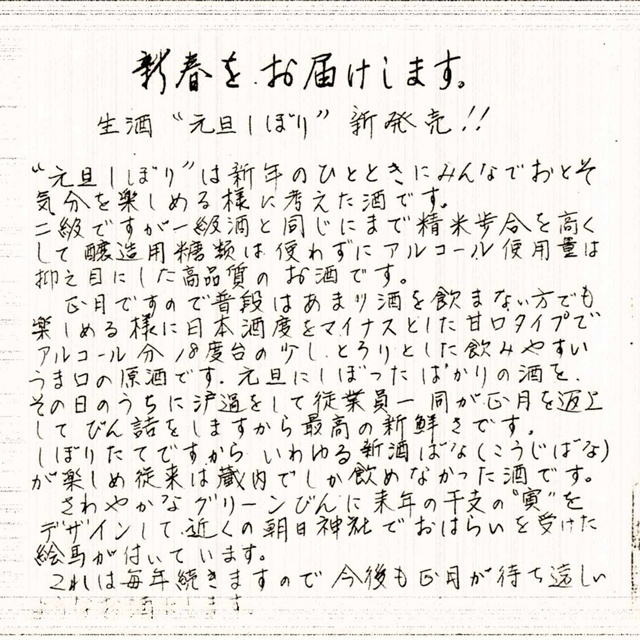 新春を、お届けします。
生酒“元旦しぼり”新発売!!
“元旦しぼり”は新年のひとときにみんなでおとそ
気分を楽しめる様に考えた酒です。
二級ですが一級酒と同じにまで精米歩合を高く
して醸造用糖類は使わずにアルコール使用量は
抑え目にした高品質のお酒です。
正月ですので普段はあまり酒を飲まない方でも
楽しめる様に日本酒度をマイナスとした甘口タイプで
アルコール分18度台の少し、とろりとした飲みやすい
うま口の原酒です。元旦にしぼったばかりの酒を、
その日のうちに沪過をして従業員一同が正月を返上
してびん詰をしますから最高の新鮮さです。
しぼりたてですからいわゆる新酒ばな(こうじばな)
が楽しめ従来は蔵内でしか飲めなかった酒です。
さわやかなグリーンびんに来年の干支の“寅”を
デザインして、近くの朝日神社でおはらいを受けた
絵馬が付いています。
これは毎年続きますので今後も正月が待ち遠しい
します。